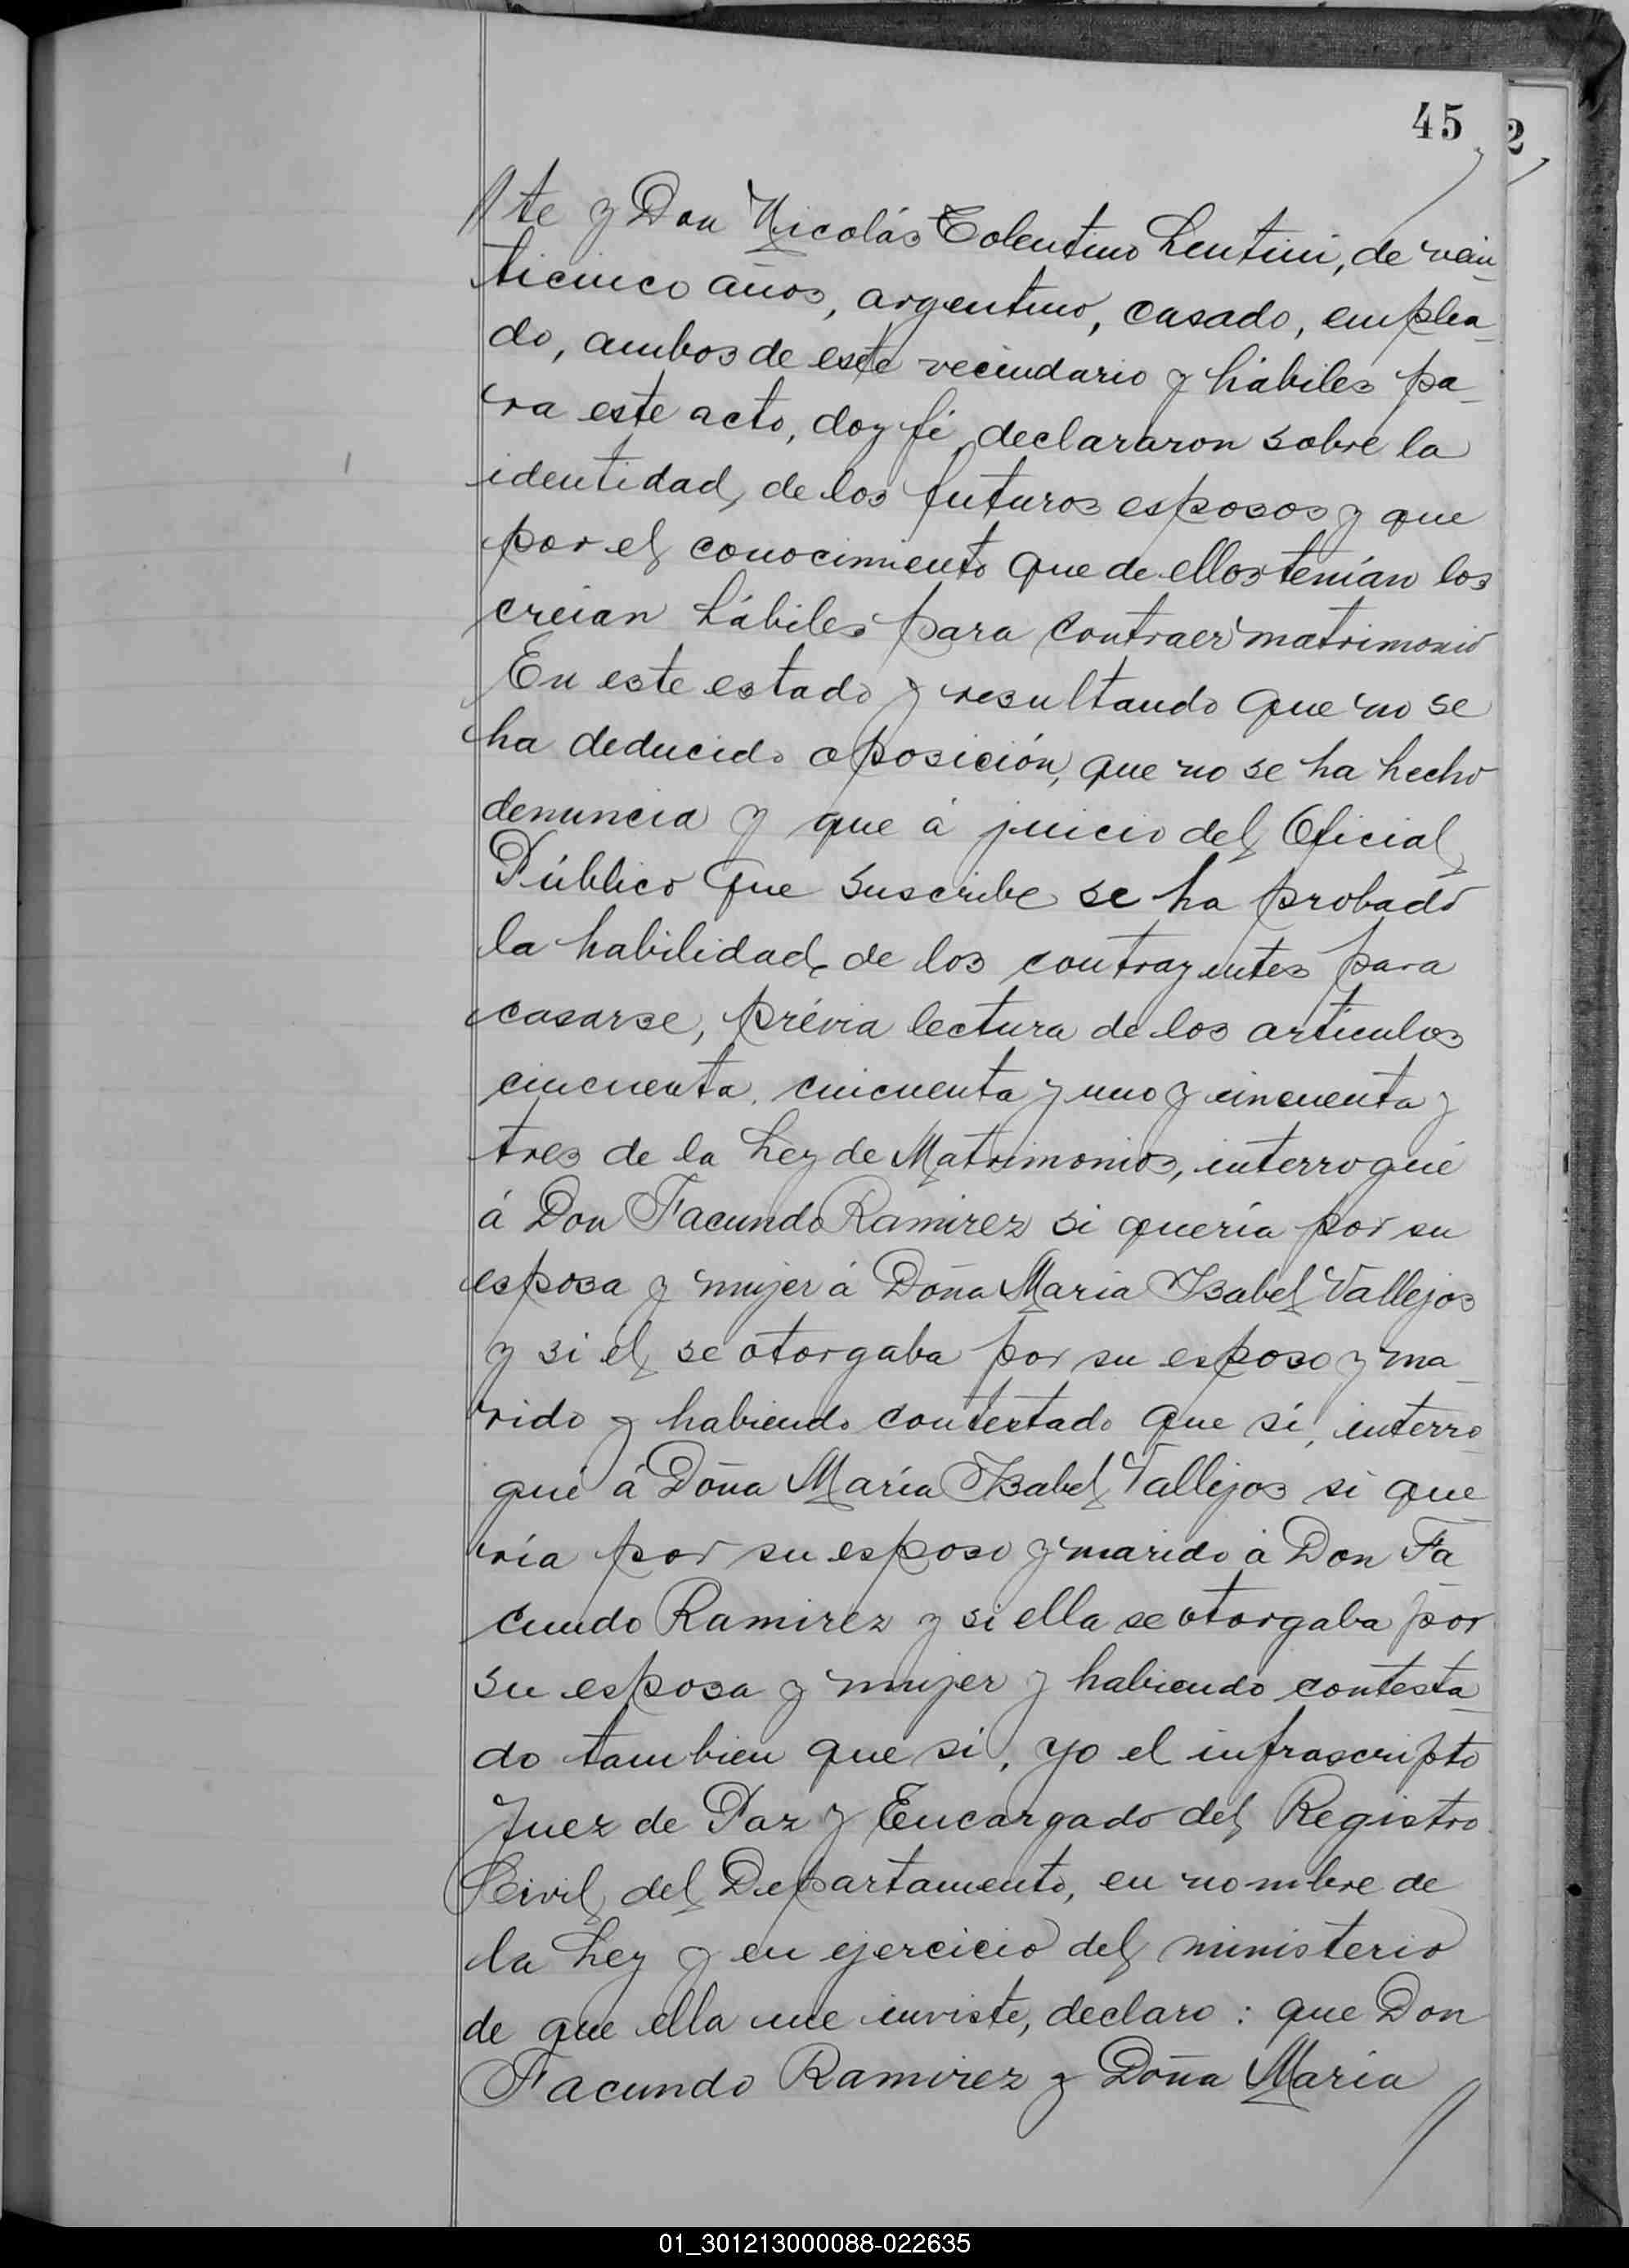 45
2
//te y Don Nicolás Tolentino Lentini, de vein
ticinco años, argentino, casado, emplea-
do, ambos de este vecindario y hábiles pa-
ra este acto, doy fé, declararon sobre la
identidad de los futuros esposos y que
por el conocimiento que de ellos tenían los
creian hábiles para contraer matrimonio
En este estado y resultando que no se
ha deducido oposición, que no se ha hecho
denuncia y que á juicio del Oficial
Público que suscribe se ha probado
la habilidad de los contrayentes para
casarse, prévia lectura de los artículos
cincuenta, cincuenta y uno y cincuenta y
tres de la Ley de Matrimonios, interrogué
á Don Facundo Ramirez si quería por su
esposa y mujer á Doña Maria Isabel Vallejos
y si él se otorgaba por su esposo y ma-
rido y habiendo contestado que sí, interro-
gué á Doña María Isabel Vallejos si que-
ría por su esposo y marido á Don Fa-
cundo Ramirez y si ella se otorgaba por
su esposa y mujer y habiendo contesta-
do tambien que si, yo el infrascripto
Juez de Paz y Encargado del Registro
Civil del Departamento, en nombre de
la Ley y en ejercicio del ministerio
de que ella me inviste, declaro: que Don
Facundo Ramirez y Doña Maria //
01_301213000088-022635